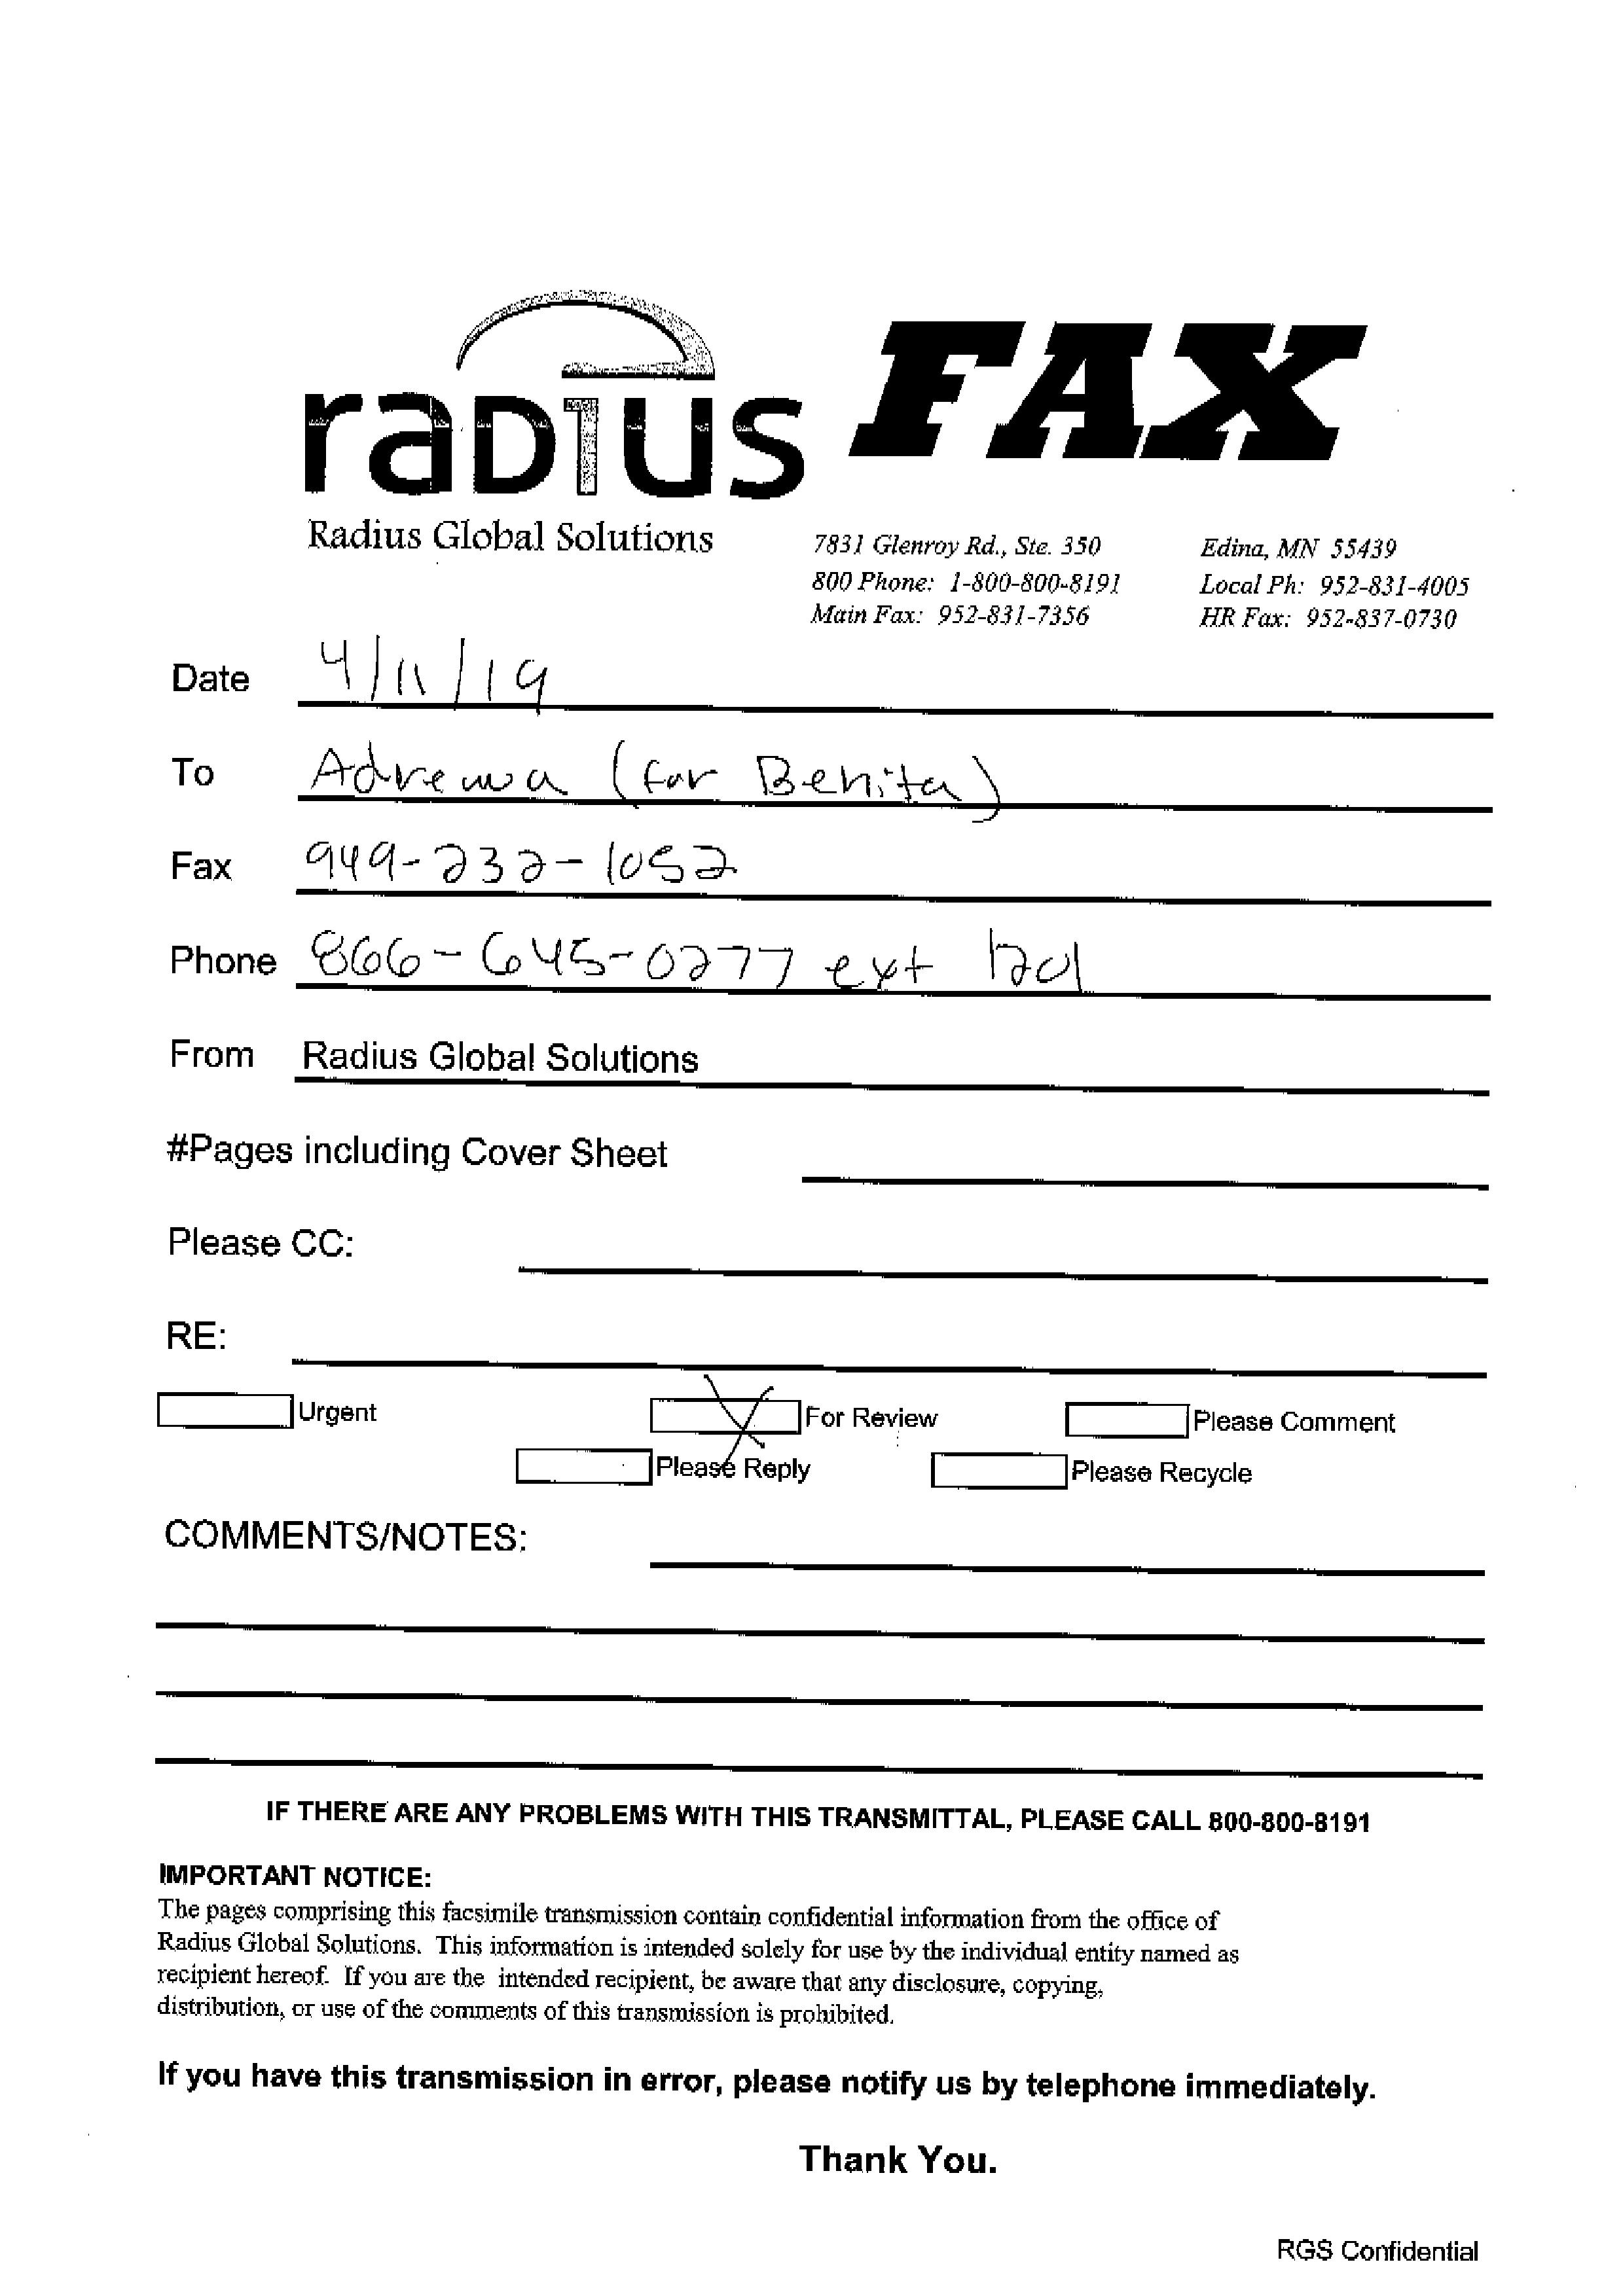 raDIus FAX
Radius Global Solutions
7831 Glenroy Rd., Ste. 350 Edina, MN 55439
800 Phone: 1-800-800-8191 Local Ph: 952-831-4005
Main Fax: 952-831-7356 HR Fax: 952-837-0730
Date 4/11/19
To (for Benita)
Fax 949-232-1052
Phone 866-645-0277 ext 121
From Radius Global Solutions
#Pages including Cover Sheet
Please CC:
RE:
Urgent X For Review Please Comment
Please Reply Please Recycle
COMMENTS/NOTES:
IF THERE ARE ANY PROBLEMS WITH THIS TRANSMITTAL, PLEASE CALL 800-800-8191
IMPORTANT NOTICE:
The pages comprising this facsimile transmission contain confidential information from the office of
Radius Global Solutions. This information is intended solely for use by the individual entity named as
recipient hereof. If you are the intended recipient, be aware that any disclosure, copying,
distribution, or use of the comments of this transmission is prohibited.
If you have this transmission in error, please notify us by telephone immediately.
Thank You.
RGS Confidential